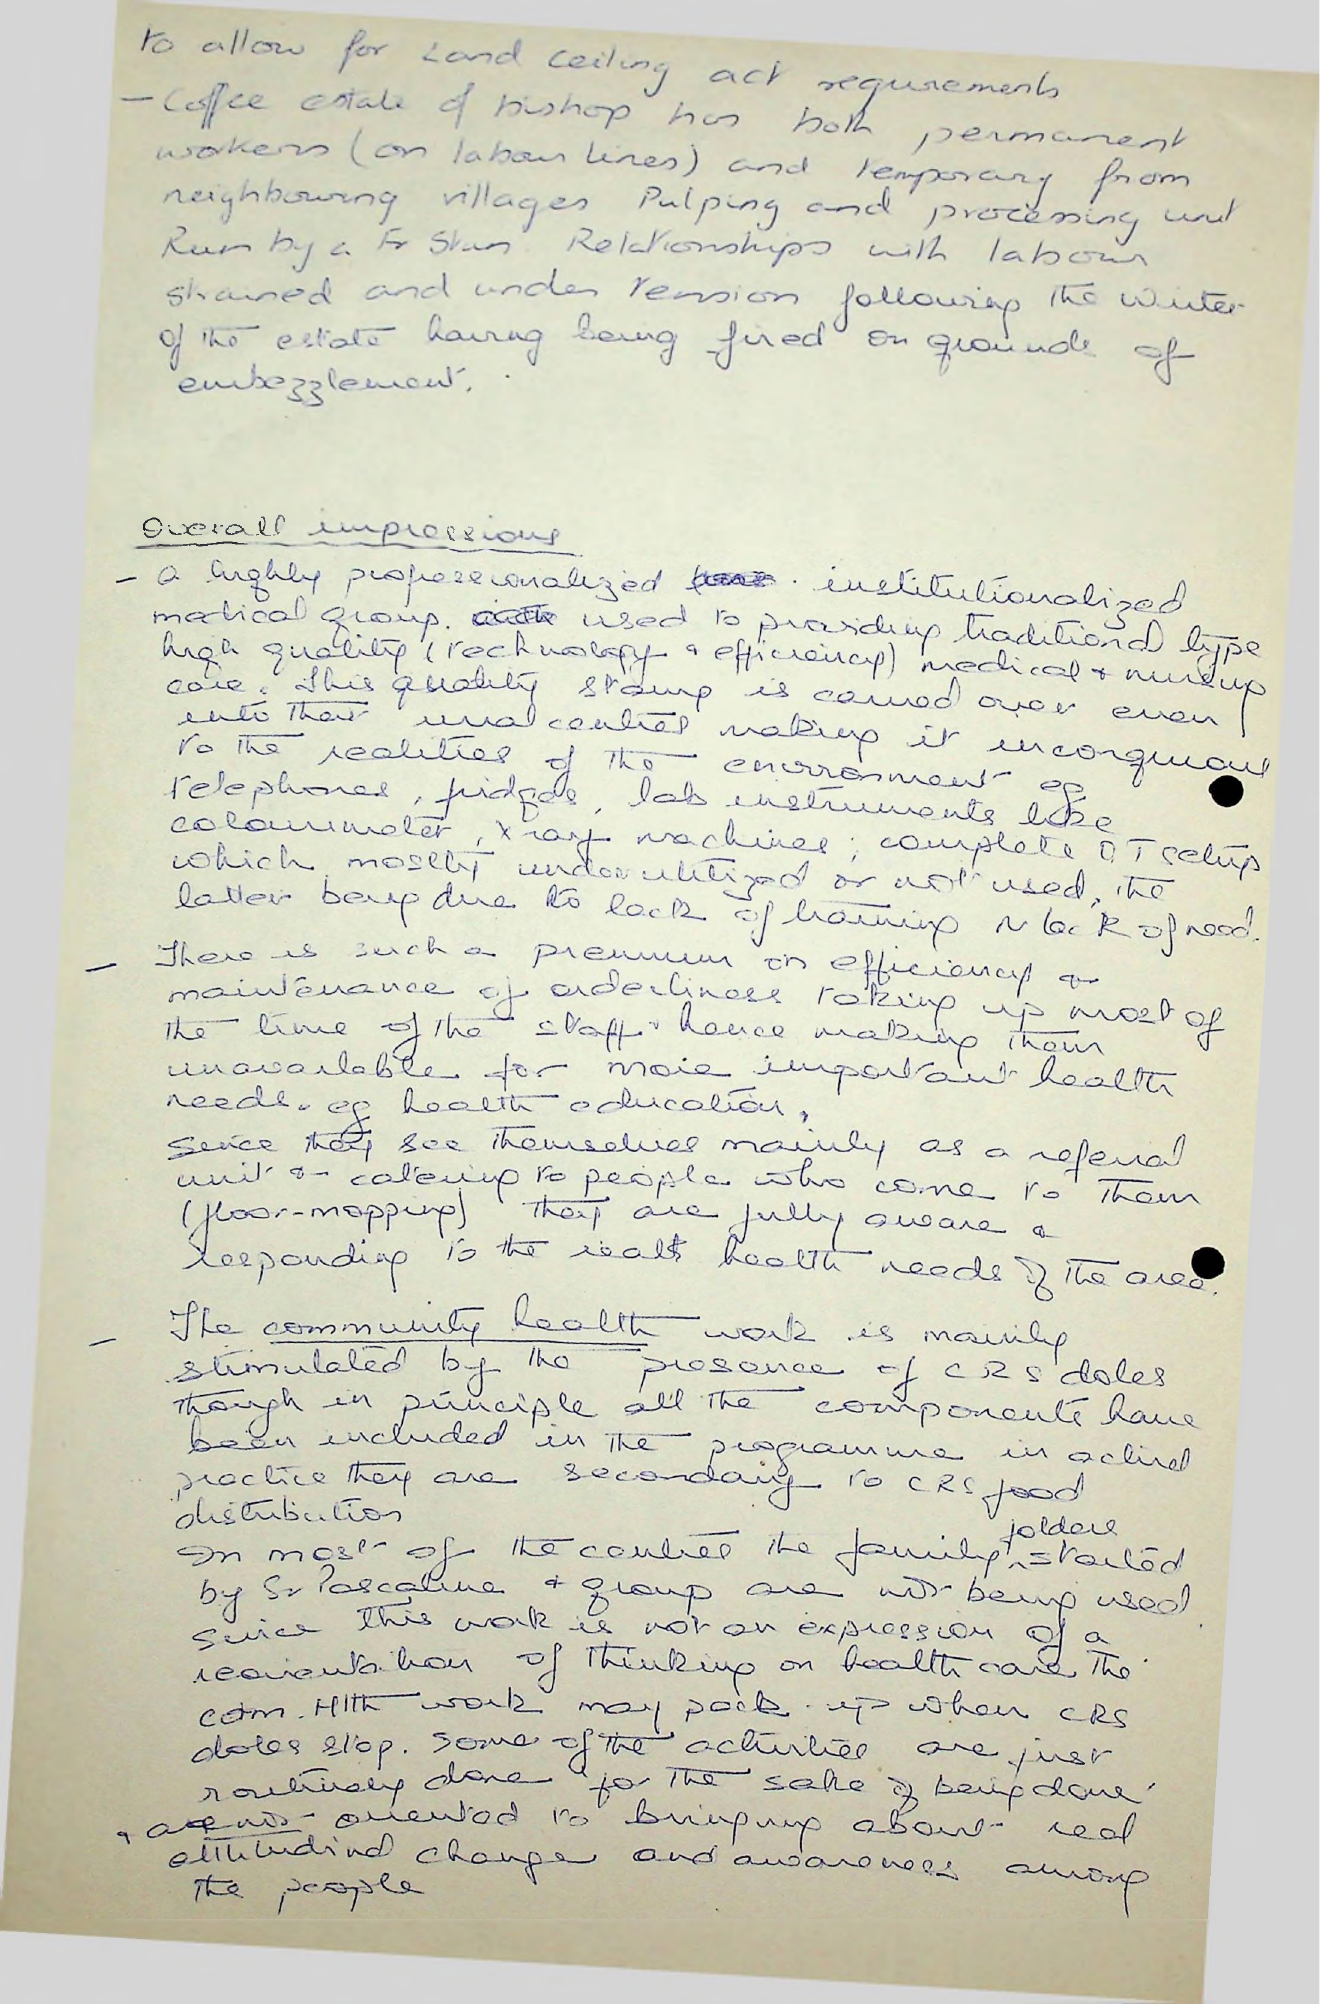 to allow for Land ceiling act requirements
- Coffee estate of bishop has both permanent
workers (on labour lines) and temporary from
neighbouring villages Pulping and processing unit
Run by a Fr Stan. Relationships with labour
strained and under tension following the writer
of the estate having being fired on grounds of
embezzlement.
Overall impressions
- a highly professionalized institutionalized
medical group. used to providing traditional type
high quality (technology & efficiency) medical & nursing
care. This quality stamp is carried over even
into their rural centres making it incongruous
to the realities of the environment eg
telephones, fridges, lab instruments like
colourimeter, X ray machines; complete OT setup
which mostly underutilized or not used, the
latter being due to lack of training or lack of need.
- There is such a premium on efficiency &
maintenance of orderliness taking up most of
the time of the staff hence making them
unavailable for more important health
needs. eg health education.
Since they see themselves mainly as a referral
unit & catering to people who come to them
(floor-mopping) they are fully aware &
responding to the real health needs of the area.
- The community health work is mainly
stimulated by the presence of CRS doles
though in principle all the components have
been included in the programme in actual
practice they are secondary to CRS food
distribution
In most of the centres the family folders started
by Sr Pascaline & group are not being used
since this work is not an expression of a
reorientation of thinking on health care the
com. Hlth work may pack up when CRS
doles stop. Some of the activities are just
routinely done 'for the sake of being done'
& are not oriented to bringing about real
attitudinal change and awareness among
the people